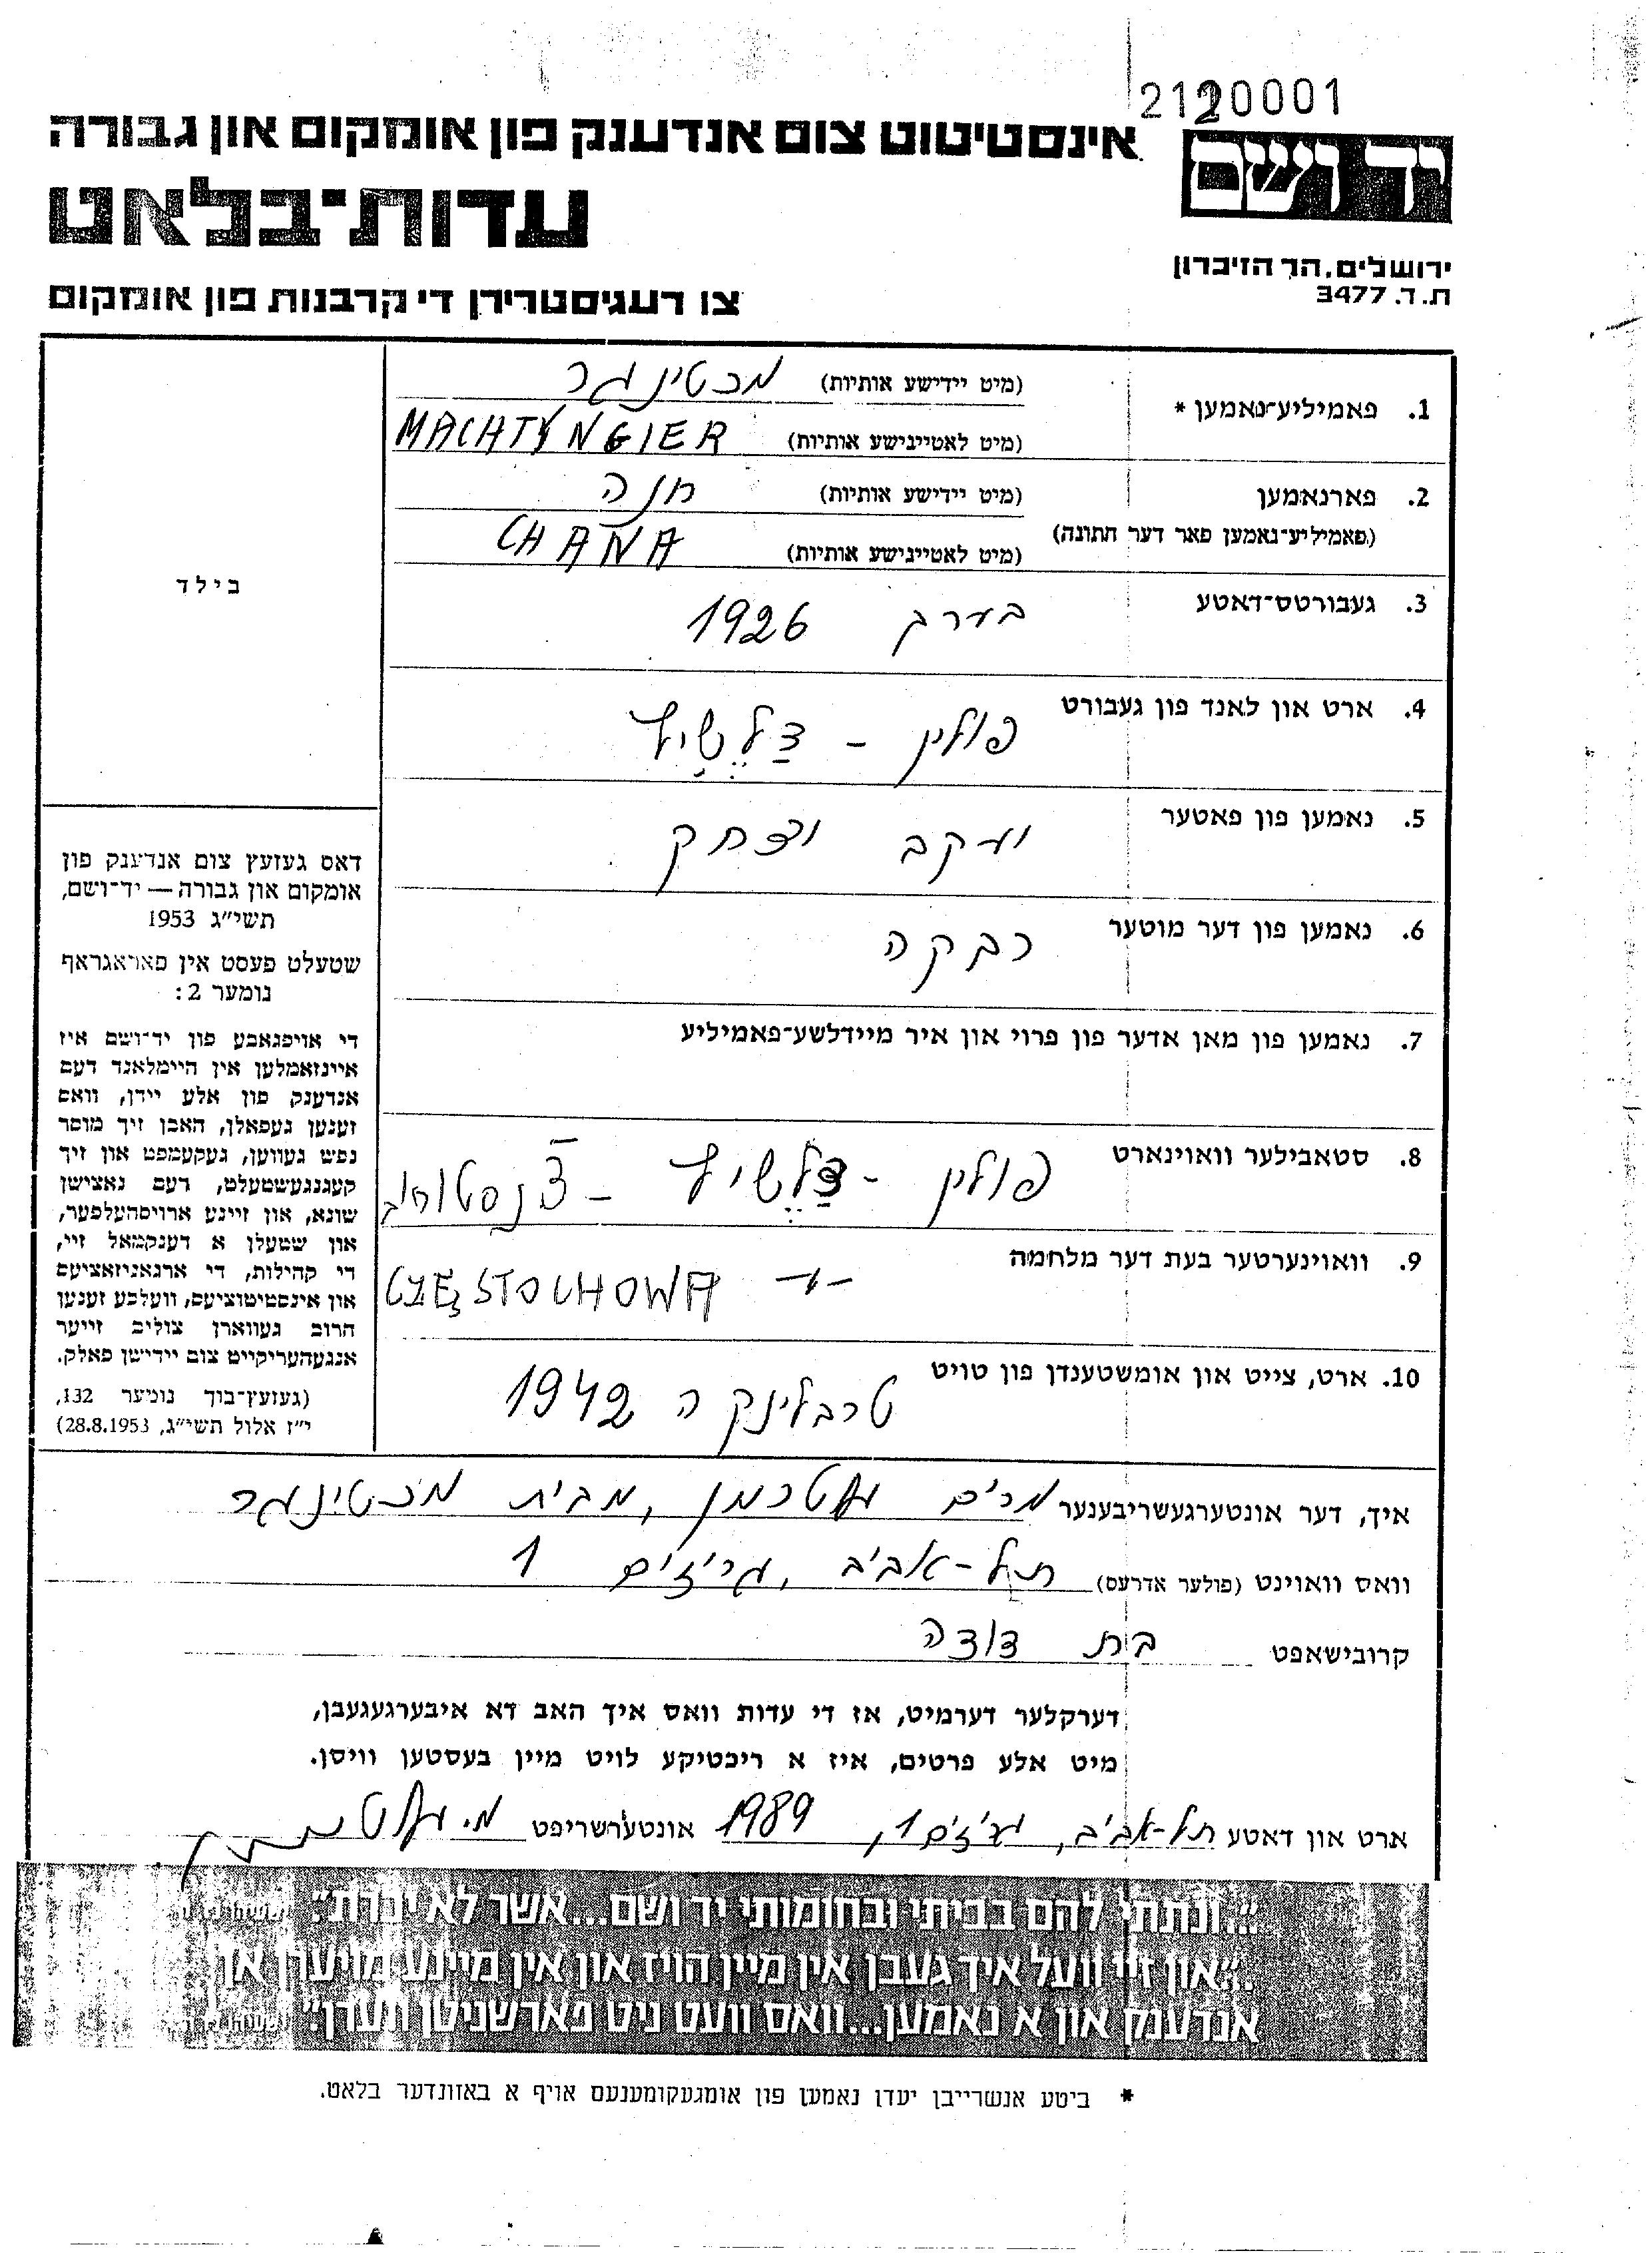 2120001
יד ושם
אינסטיטוט צום אנדענק פון אומקום און גבורה
עדות־בלאט
ירושלים, הר הזיכרון
ת. ד. 3477
צו רעגיסטרירן די קרבנות פון אומקום
1. פאמיליע־נאמען *
(מיט יידישע אותיות) מכטינגר
(מיט לאטיינישע אותיות) MACHTYNGIER
2. פארנאמען
(פאמיליע־נאמען פאר דער חתונה)
(מיט יידישע אותיות) חנה
(מיט לאטיינישע אותיות) CHANA
3. געבורטס־דאטע
בערך 1926
4. ארט און לאנד פון געבורט
פולין -
5. נאמען פון פאטער
יעקב יצחק
6. נאמען פון דער מוטער
רבקה
7. נאמען פון מאן אדער פון פרוי און איר מיידלשע־פאמיליע
8. סטאבילער וואוינארט
פולין - - צ'נסטוחוב
9. וואוינערטער בעת דער מלחמה
CZĘSTOCHOWA
10. ארט, צייט און אומשטענדן פון טויט
טרבלינקה 1942
בילד
דאס געזעץ צום אנדענק פון
אומקום און גבורה — יד־ושם,
תשי״ג 1953
שטעלט פעסט אין פאראגראף
נומער 2:
די אויפגאבע פון יד־ושם איז
איינזאמלען אין היימלאנד דעם
אנדענק פון אלע יידן, וואס
זענען געפאלן, האבן זיך מוסר
נפש געווען, געקעמפט און זיך
קעגנגעשטעלט, דעם נאצישן
שונא, און זיינע ארויסהעלפער,
און שטעלן א דענקמאל זיי,
די קהילות, די ארגאניזאציעס
און אינסטיטוציעס, וועלכע זענען
חרוב געווארן צוליב זייער
אנגעהעריקייט צום יידישן פאלק.
(געזעץ־בוך נומער 132,
י״ז אלול תשי״ג, 28.8.1953)
איך, דער אונטערגעשריבענער מרים גוטרמן, מבית מכטינגר
וואס וואוינט (פולער אדרעס) תל-אביב, גריזים 1
קרובישאפט בת דודה
דערקלער דערמיט, אז די עדות וואס איך האב דא איבערגעגעבן,
מיט אלע פרטים, איז א ריכטיקע לויט מיין בעסטען וויסן.
ארט און דאטע תל-אביב, גריזים 1, 1989 אונטערשריפט
״...ונתתי להם בביתי ובחומותי יד ושם...אשר לא יכרת״.
״און זיי וועל איך געבן אין מיין הויז און אין מיינע מויערן אן
אנדענק און א נאמען...וואס וועט ניט פארשניטן ווערן״.
* ביטע אנשרייבן יעדן נאמען פון אומגעקומענעם אויף א באזונדער בלאט.